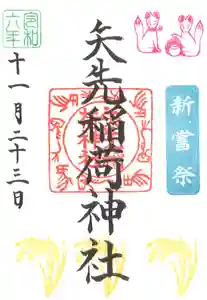 令和
六年
新嘗祭
矢先稲荷神社
十一月二十三日